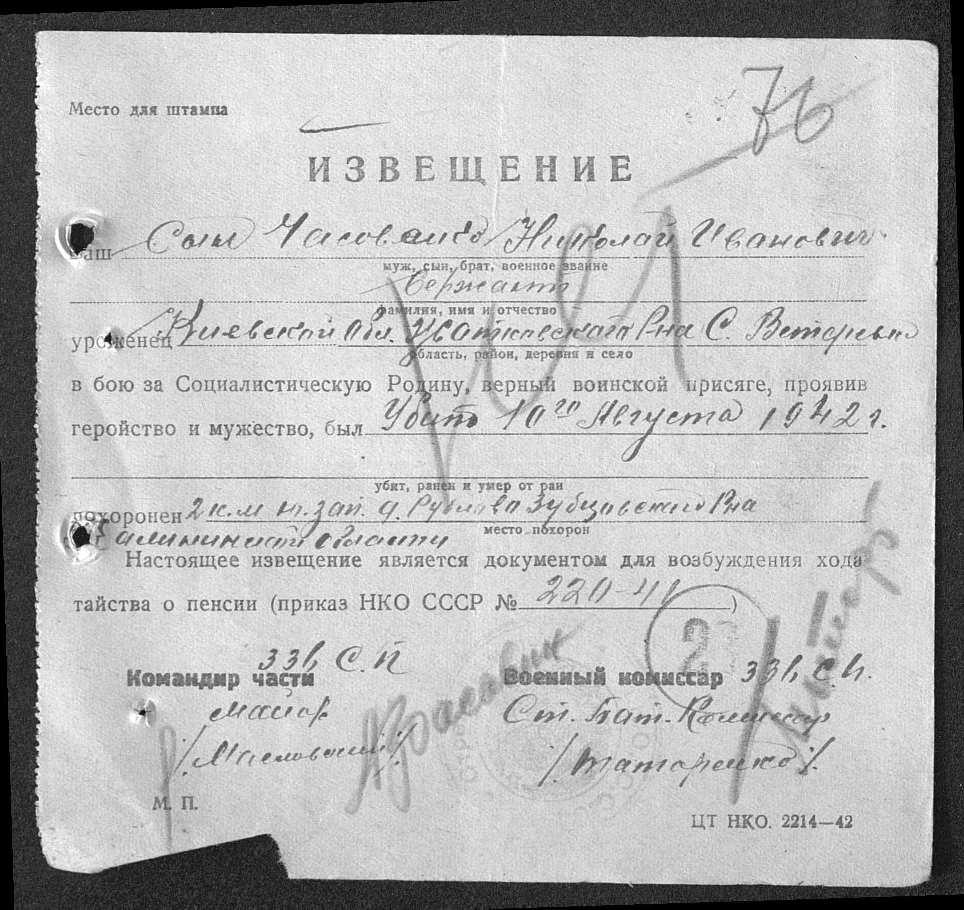 76
Место для штампа
ИЗВЕЩЕНИЕ
Ваш Сын Часовенко Николай Иванович
муж, сын, брат, военное звание
Сержант
фамилия, имя и отчество
уроженец Киевской Обл. Р-на С.
область, район, деревня и село
в бою за Социалистическую Родину, верный воинской присяге, проявив
геройство и мужество, был Убит 10го Августа 1942 г.
убит, ранен и умер от ран
похоронен 2 км ю. зап. д. Зубцовского Р-на
место похорон
Калининской области
Настоящее извещение является документом для возбуждения хода
тайства о пенсии (приказ НКО СССР № 220-41)
336 С.П
Командир части Военный комиссар 336 С.П.
майор Ст. Бат. Комиссар
/Масловский/ /Татаренко/.
М. П.
ЦТ НКО. 2214—42